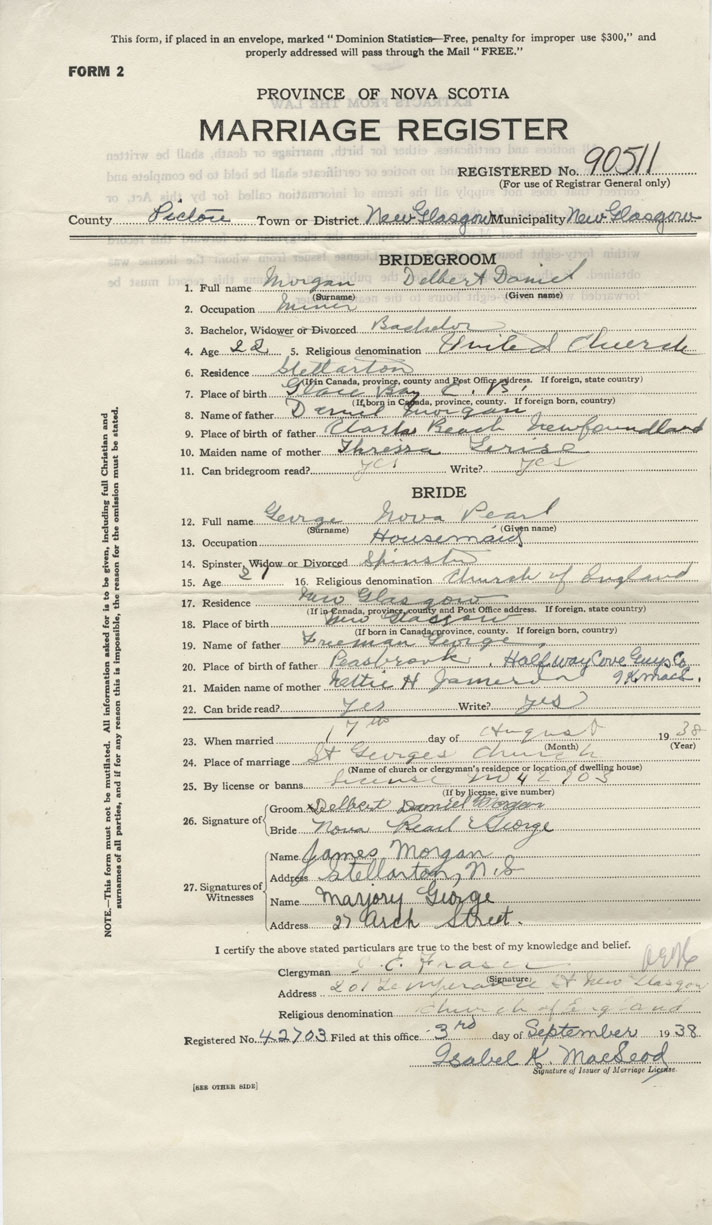 This form, if placed in an envelope, marked " Dominion Statistics—Free, penalty for improper use $300," and
properly addressed will pass through the Mail " FREE."
FORM 2
PROVINCE OF NOVA SCOTIA
MARRIAGE REGISTER
REGISTERED No. 90511
(For use of Registrar General only)
County Pictou Town or District New Glasgow Municipality New Glasgow
BRIDEGROOM
1. Full name Morgan Delbert Daniel
(Surname) (Given name)
2. Occupation Miner
3. Bachelor, Widower or Divorced Bachelor
4. Age 22 5. Religious denomination United Church
6. Residence Stellarton
(If in Canada, province, county and Post Office address. If foreign, state country)
7. Place of birth Glace Bay C. B.
(If born in Canada, province, county. If foreign born, country)
8. Name of father Daniel Morgan
9. Place of birth of father Clarks Beach Newfoundland
10. Maiden name of mother Thressa
11. Can bridegroom read? yes Write? yes
BRIDE
12. Full name George Nova Pearl
(Surname) (Given name)
13. Occupation Housemaid
14. Spinster, Widow or Divorced Spinster
15. Age 21 16. Religious denomination Church of England
17. Residence New Glasgow
(If in Canada, province, county and Post Office address. If foreign, state country)
18. Place of birth New Glasgow
(If born in Canada, province, county. If foreign born, country)
19. Name of father Freeman George
20. Place of birth of father Peasbrook, Half way Cove Guys Co
21. Maiden name of mother Nettie H Jamieson
22. Can bride read? yes Write? yes
23. When married 17th day of August 1938
(Month) (Year)
24. Place of marriage St Georges Church
(Name of church or clergyman's residence or location of dwelling house)
25. By license or banns license No 42703
(If by license, give number)
26. Signature of
Groom Delbert Daniel Morgan
Bride Nova Pearl George
27. Signatures of Witnesses
Name James Morgan
Address Stellarton, N.S
Name Marjory George
Address 27 Arch Street.
I certify the above stated particulars are true to the best of my knowledge and belief.
Clergyman C. E. Fraser
(Signature)
Address 201 Temperance St New Glasgow
Religious denomination Church of England
Registered No. 42703 Filed at this office 3rd day of September 1938
Isabel K. MacLeod
Signature of Issuer of Marriage License.
[SEE OTHER SIDE]
NOTE.—This form must not be mutilated. All information asked for is to be given, including full Christian and
surnames of all parties, and if for any reason this is impossible, the reason for the omission must be stated.